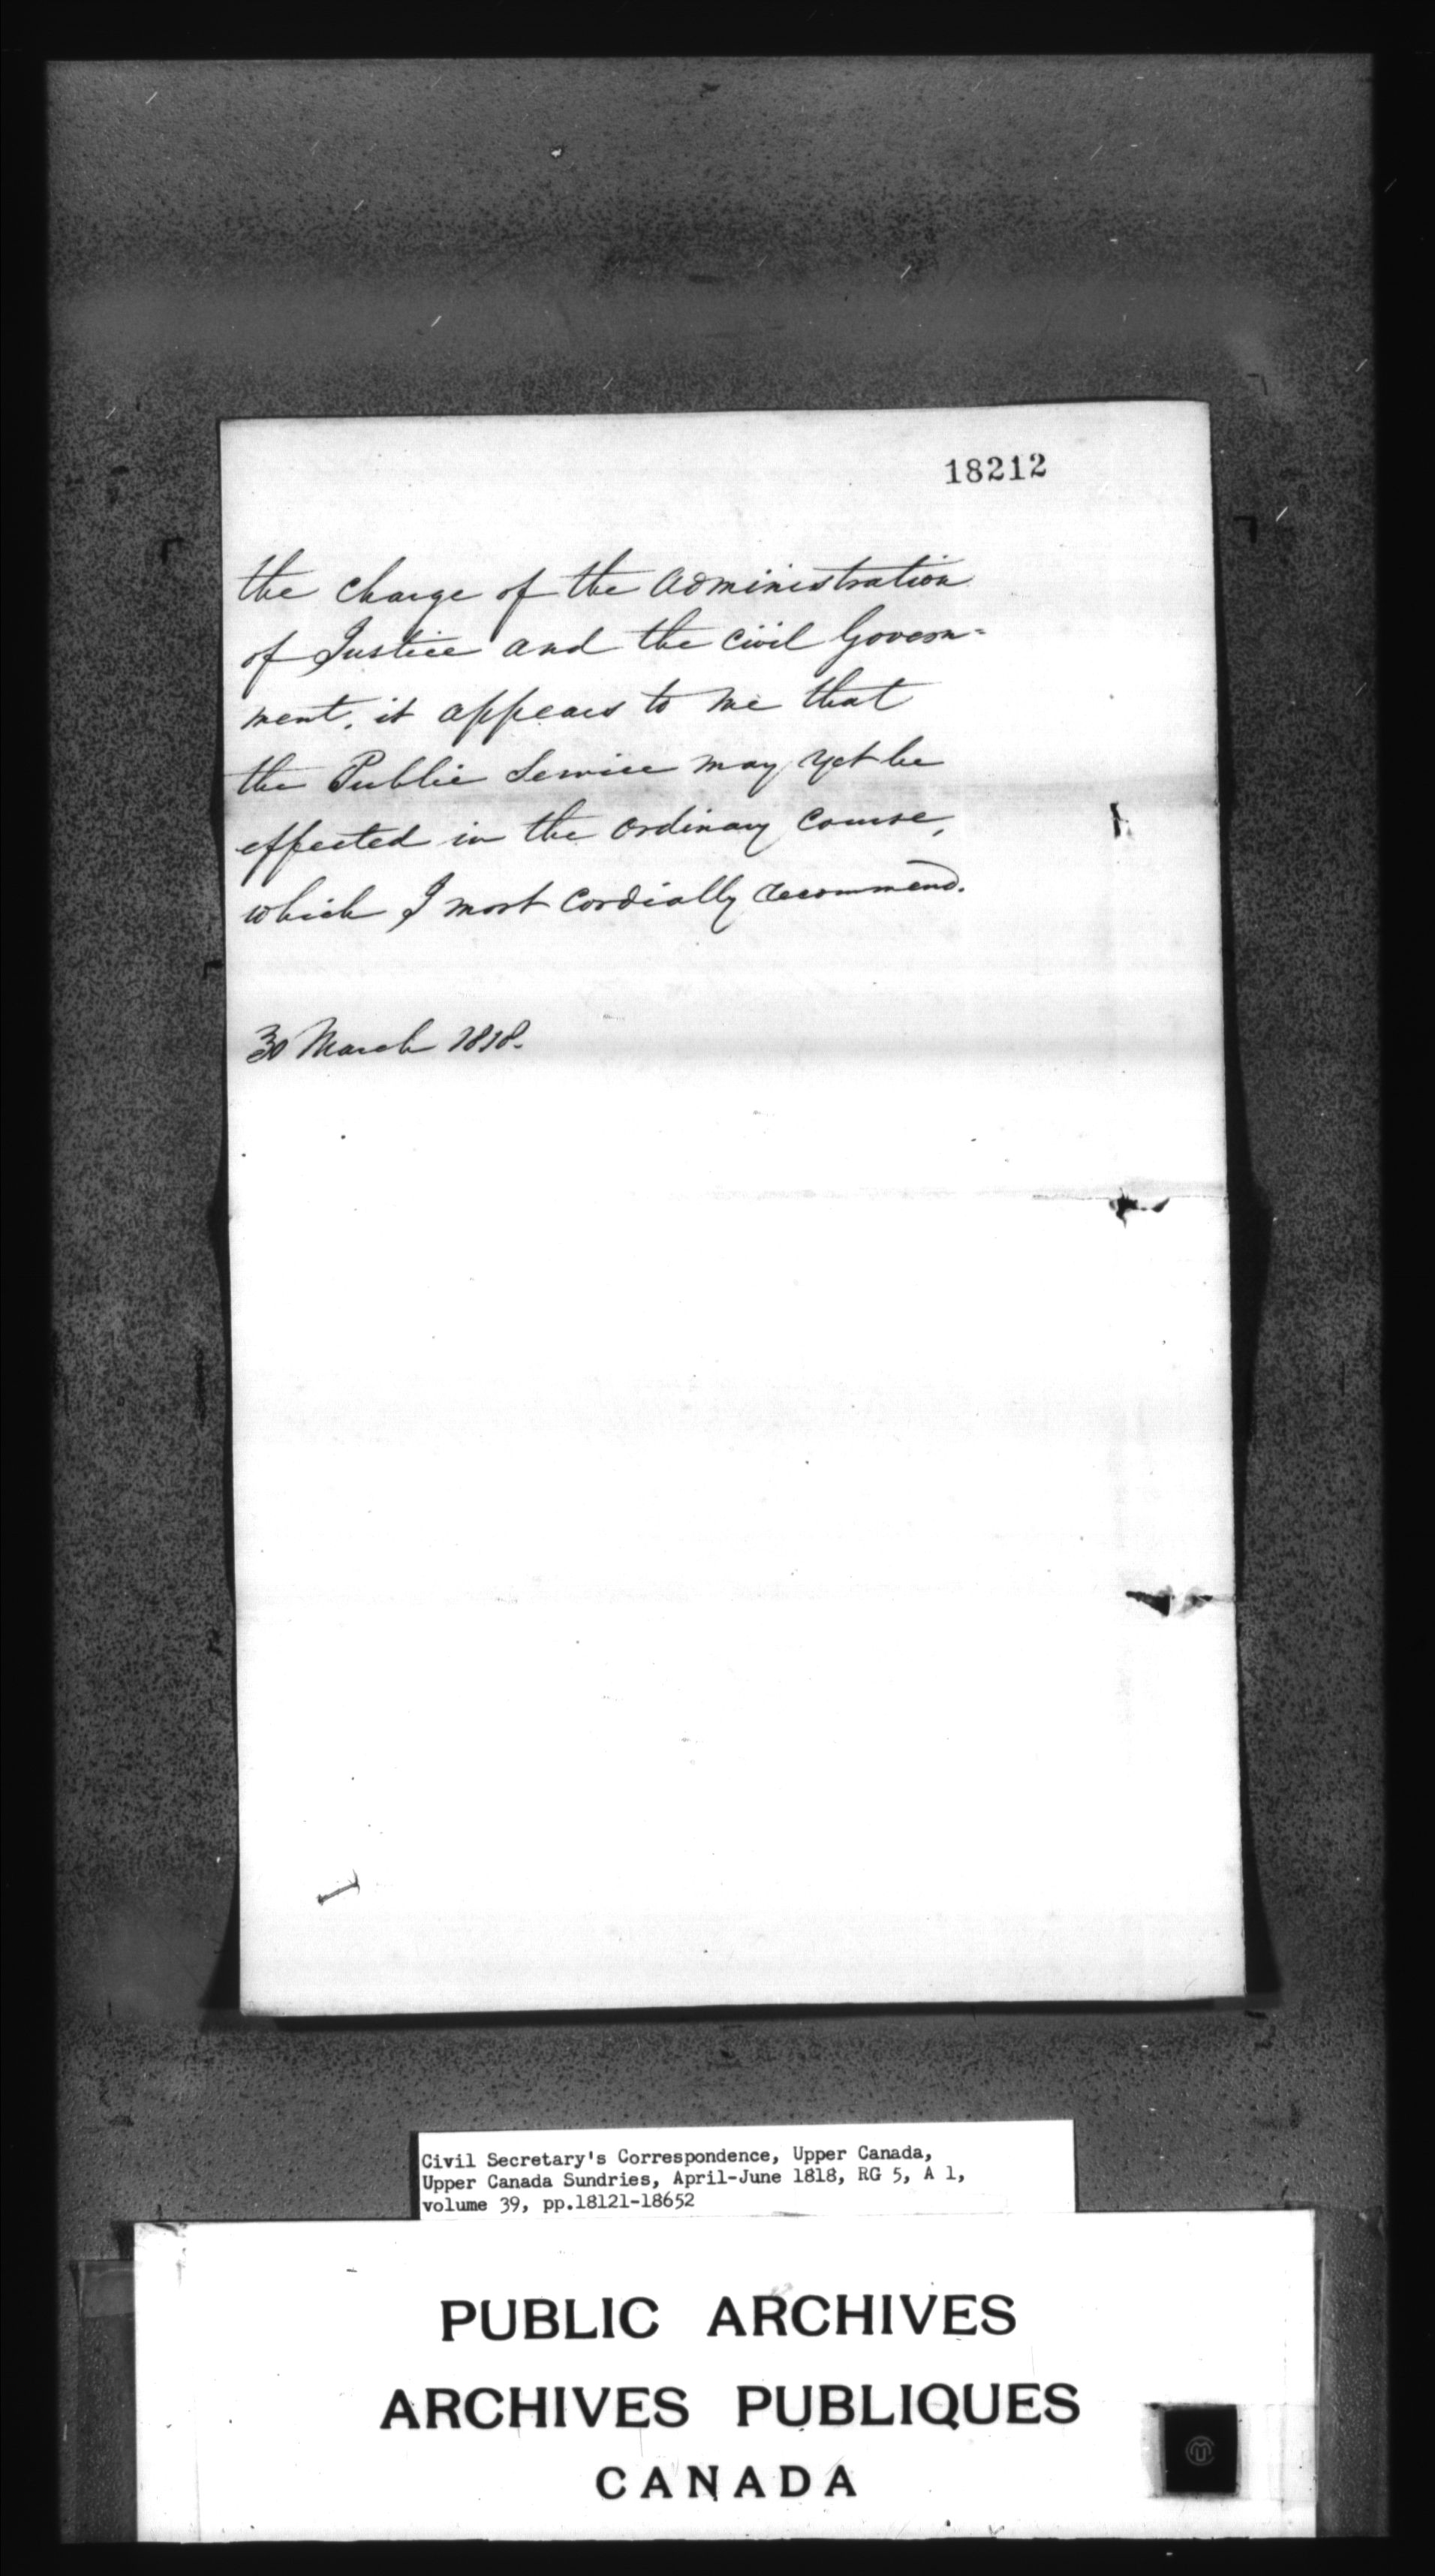 18212
the charge of the Administration
of Justice and the Civil Govern=
ment, it appears to me that
the Public Service may yet be
effected in the ordinary course,
which I most cordially recommend.
30 March 1818.
Civil Secretary's Correspondence, Upper Canada,
Upper Canada Sundries, April-June 1818, RG 5, A 1,
volume 39, pp.18121-18652
PUBLIC ARCHIVES
ARCHIVES PUBLIQUES
CANADA